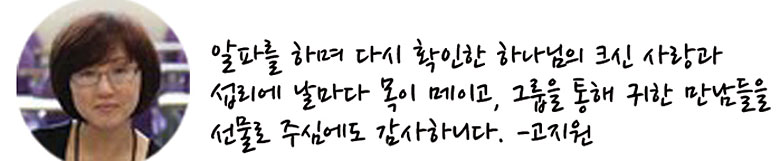 알파를 하며 다시 확인한 하나님의 크신 사랑과
섭리에 날마다 목이 메이고, 그룹을 통해 귀한 만남들을
선물로 주심에도 감사하니다. -고지원